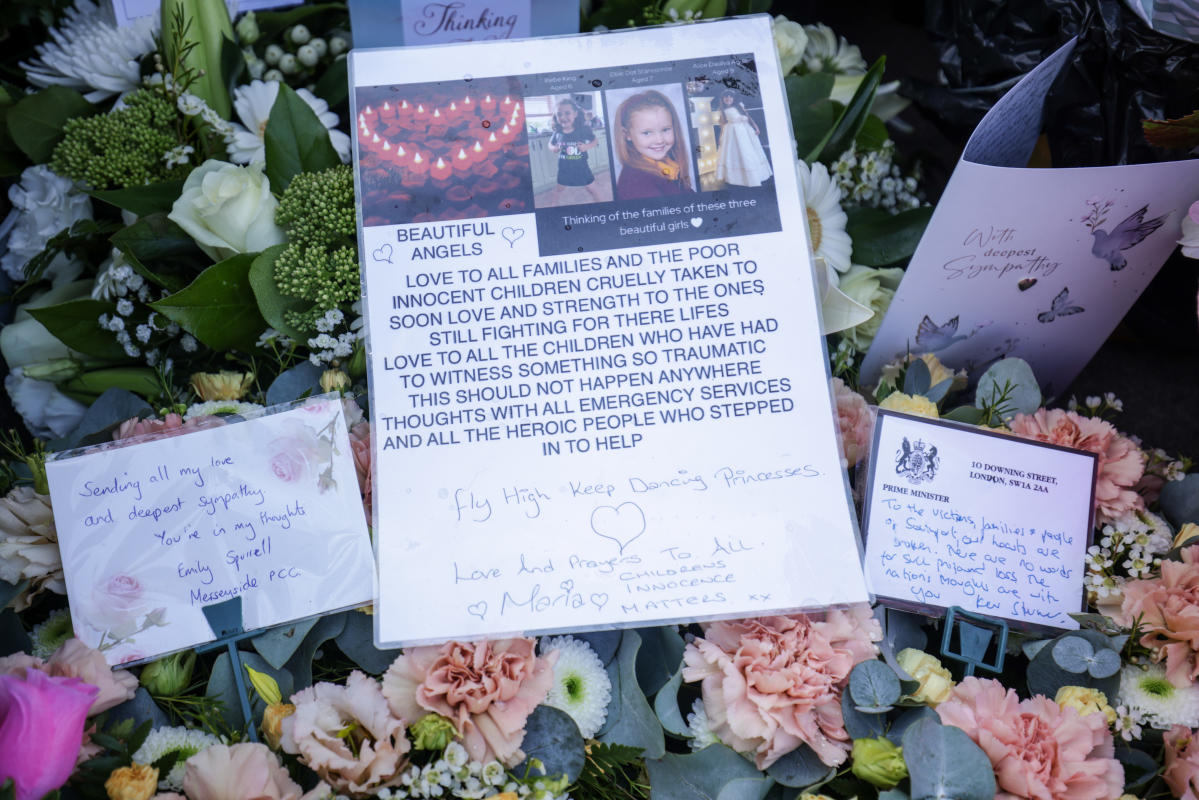 Thinking
Bebe King
Aged 6
Elsie Dot Stancombe
Aged 7
Aged 9
Thinking of the families of these three
beautiful girls
BEAUTIFUL
ANGELS
LOVE TO ALL FAMILIES AND THE POOR
INNOCENT CHILDREN CRUELLY TAKEN TO
SOON LOVE AND STRENGTH TO THE ONES
STILL FIGHTING FOR THERE LIFES
LOVE TO ALL THE CHILDREN WHO HAVE HAD
TO WITNESS SOMETHING SO TRAUMATIC
THIS SHOULD NOT HAPPEN ANYWHERE
THOUGHTS WITH ALL EMERGENCY SERVICES
AND ALL THE HEROIC PEOPLE WHO STEPPED
IN TO HELP
Fly High Keep Dancing Princesses.
Love And Prayers To All.
Maria
CHILDRENS
INNOCENCE
MATTERS xx
Sending all my love
and deepest sympathy
You're in my thoughts
Emily Spurrell
Merseyside PCC.
With
deepest
Sympathy
10 DOWNING STREET,
LONDON, SW1A 2AA
PRIME MINISTER
To the victims, families & people
of Southport, our hearts are
broken. There are no words
for such profound loss. The
nations thoughts are with
you Keir Starmer.